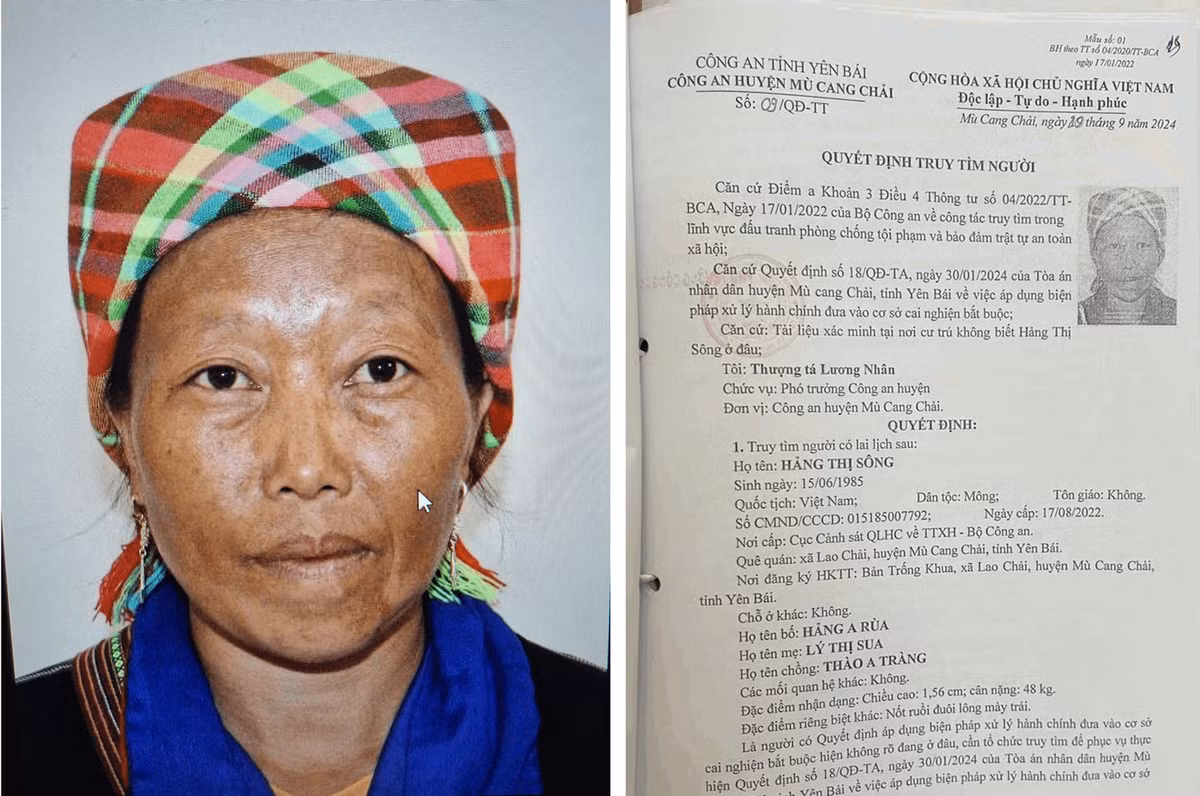 Mẫu số: 01
BH theo TT số 04/2020/TT-BCA
ngày 17/01/2022
CÔNG AN TỈNH YÊN BÁI
CÔNG AN HUYỆN MÙ CANG CHẢI
Số: 09/QĐ-TT
CỘNG HÒA XÃ HỘI CHỦ NGHĨA VIỆT NAM
Độc lập - Tự do - Hạnh phúc
Mù Cang Chải, ngày 19 tháng 9 năm 2024
QUYẾT ĐỊNH TRUY TÌM NGƯỜI
Căn cứ Điểm a Khoản 3 Điều 4 Thông tư số 04/2022/TT-
BCA, Ngày 17/01/2022 của Bộ Công an về công tác truy tìm trong
lĩnh vực đấu tranh phòng chống tội phạm và bảo đảm trật tự an toàn
xã hội;
Căn cứ Quyết định số 18/QĐ-TA, ngày 30/01/2024 của Tòa án
nhân dân huyện Mù cang Chải, tỉnh Yên Bái về việc áp dụng biện
pháp xử lý hành chính đưa vào cơ sở cai nghiện bắt buộc;
Căn cứ: Tài liệu xác minh tại nơi cư trú không biết Hảng Thị
Sông ở đâu;
Tôi: Thượng tá Lương Nhân
Chức vụ: Phó trưởng Công an huyện
Đơn vị: Công an huyện Mù Cang Chải.
QUYẾT ĐỊNH:
1. Truy tìm người có lai lịch sau:
Họ tên: HẢNG THỊ SÔNG
Sinh ngày: 15/06/1985
Quốc tịch: Việt Nam; Dân tộc: Mông; Tôn giáo: Không.
Số CMND/CCCD: 015185007792; Ngày cấp: 17/08/2022.
Nơi cấp: Cục Cảnh sát QLHC về TTXH - Bộ Công an.
Quê quán: xã Lao Chải, huyện Mù Cang Chải, tỉnh Yên Bái.
Nơi đăng ký HKTT: Bản Trống Khua, xã Lao Chải, huyện Mù Cang Chải,
tỉnh Yên Bái.
Chỗ ở khác: Không.
Họ tên bố: HẢNG A RÙA
Họ tên mẹ: LÝ THỊ SUA
Họ tên chồng: THÀO A TRÀNG
Các mối quan hệ khác: Không.
Đặc điểm nhận dạng: Chiều cao: 1,56 cm; cân nặng: 48 kg.
Đặc điểm riêng biệt khác: Nốt ruồi đuôi lông mày trái.
Là người có Quyết định áp dụng biện pháp xử lý hành chính đưa vào cơ sở
cai nghiện bắt buộc hiện không rõ đang ở đâu, cần tổ chức truy tìm để phục vụ thực
hiện Quyết định số 18/QĐ-TA, ngày 30/01/2024 của Tòa án nhân dân huyện Mù
Yên Bái về việc áp dụng biện pháp xử lý hành chính đưa vào cơ sở